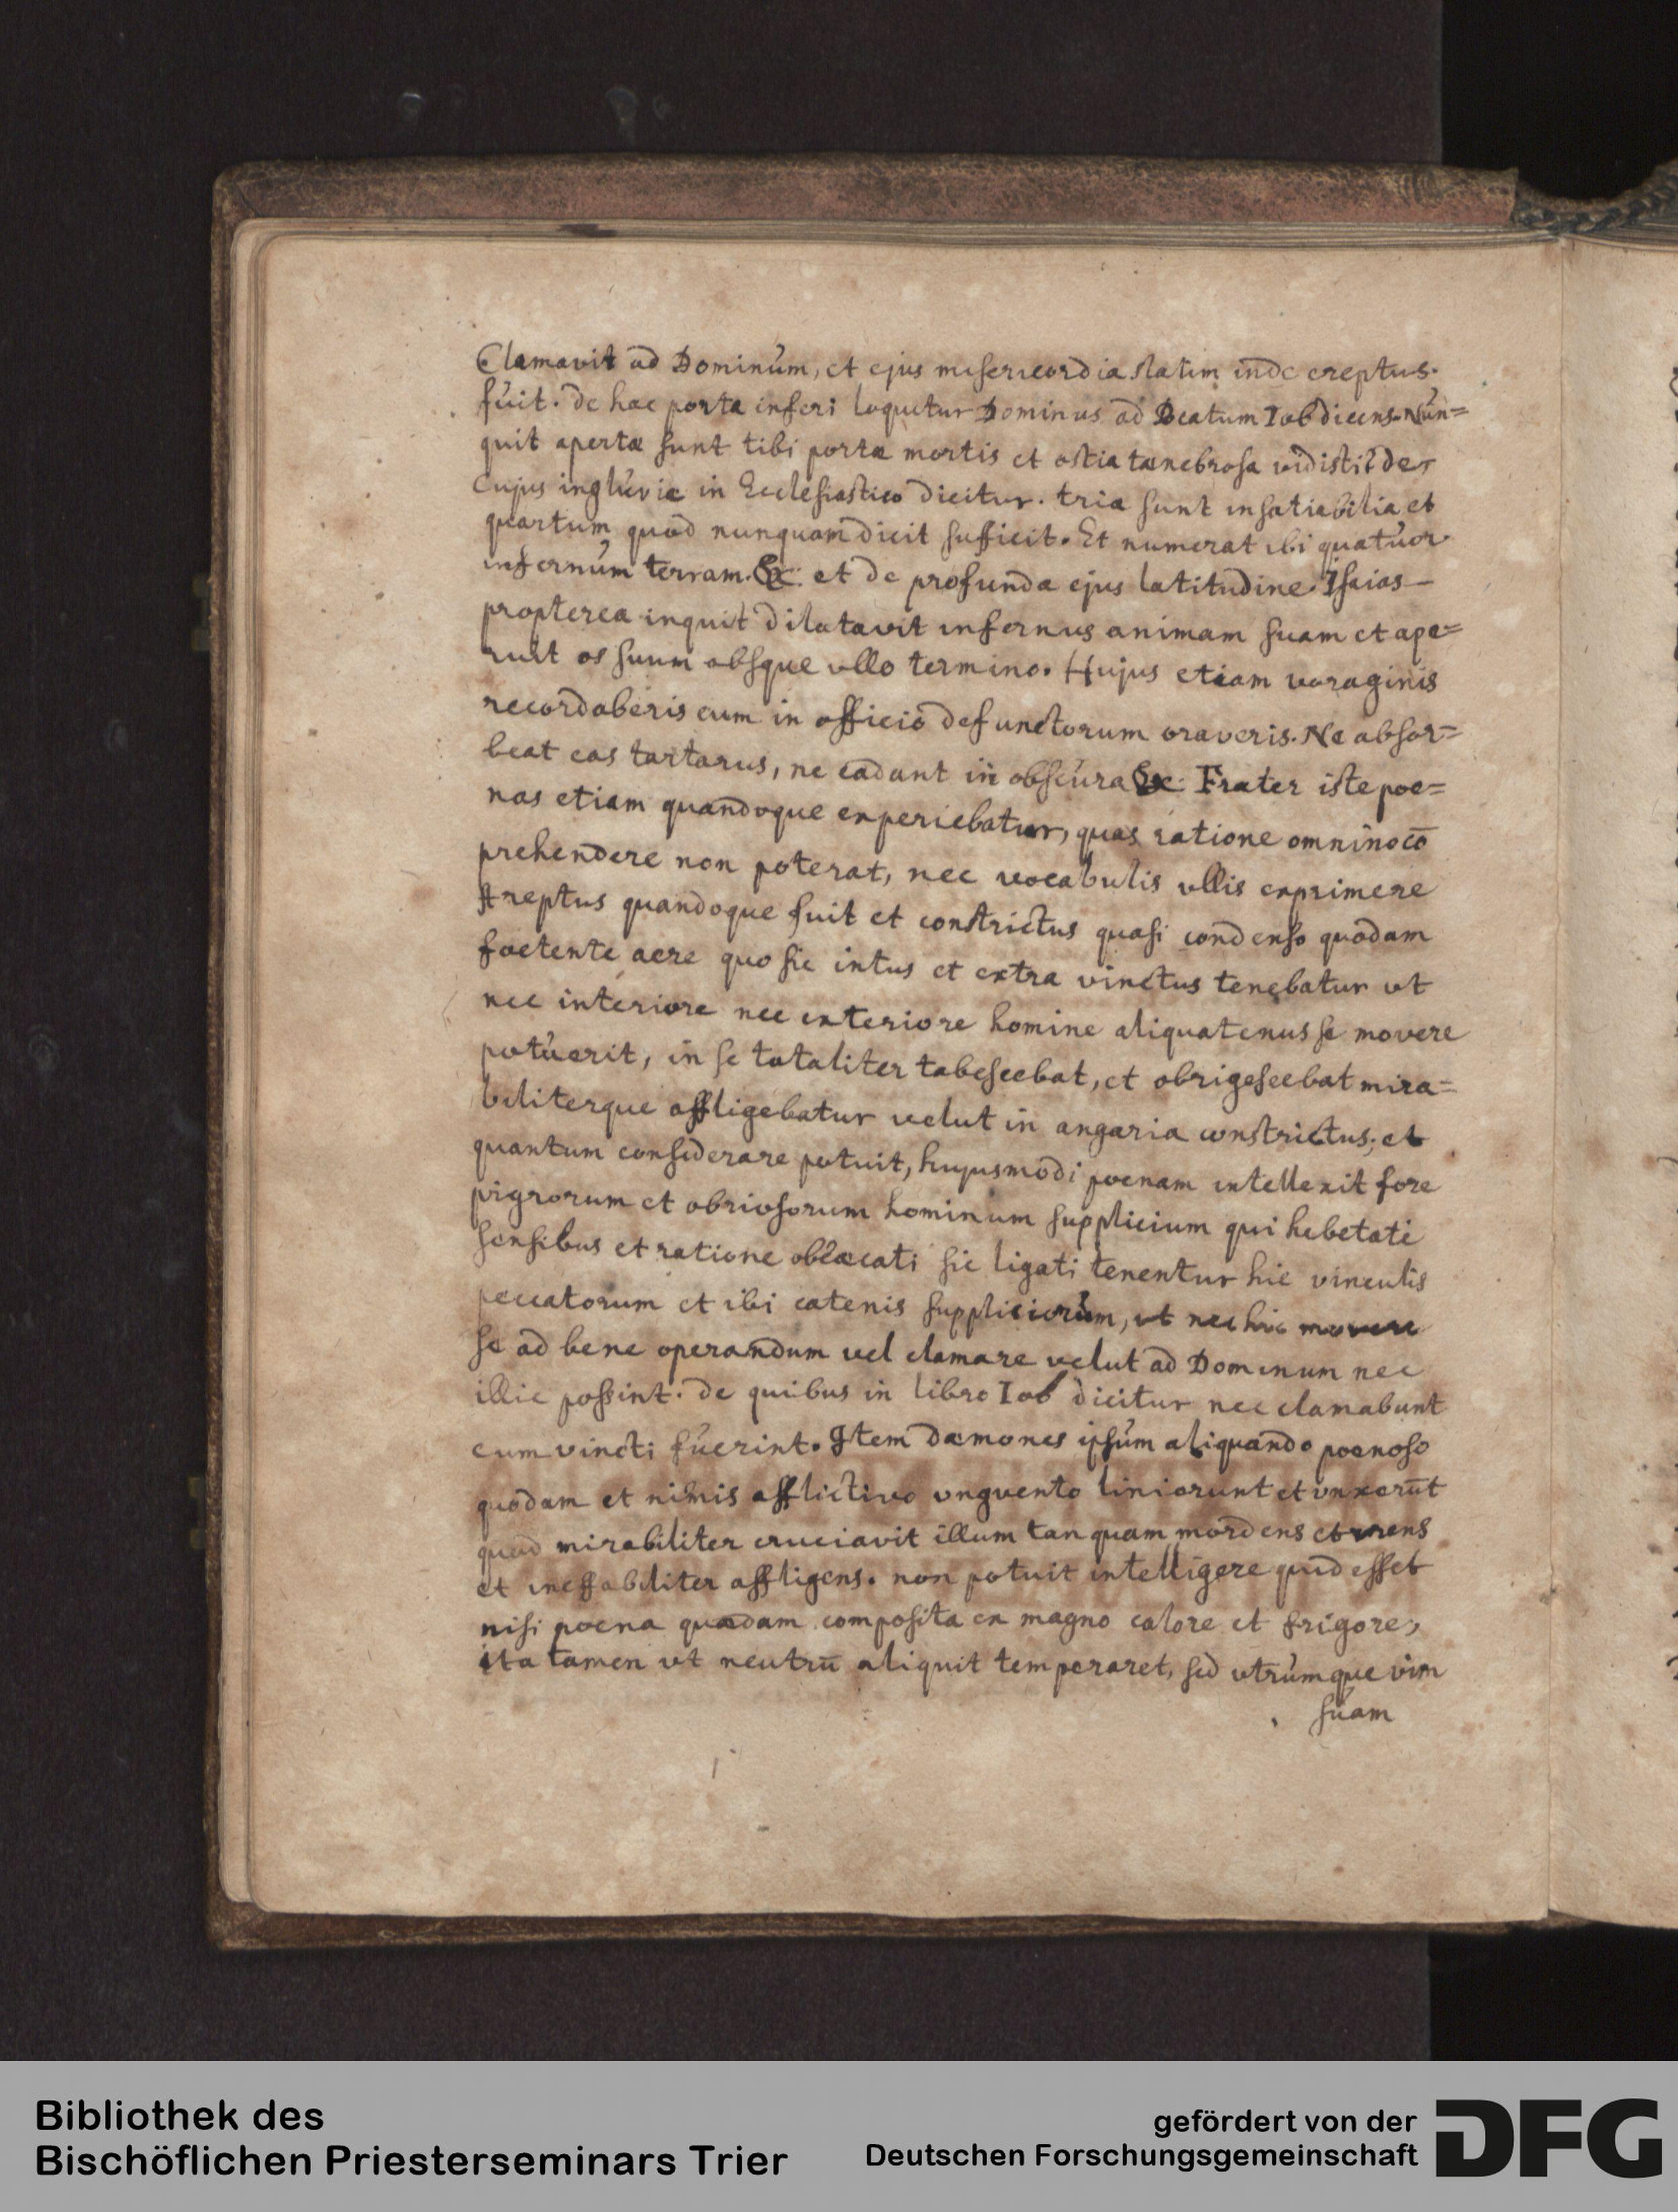 Clamavit ad Dominum, et ejus misericordia statim inde ereptus.
fuit. de hac porta inferi loquitur Dominus ad Beatum Iob dicens. Nun=
quit apertæ sunt tibi portæ mortis et ostia tænebrosa vidisti? de
Cujus ingluvie in Ecclesiastico dicitur. tria sunt insatiabilia et
quartum quod nunquam dicit sufficit. Et numerat ibi quatuor
infernum terram. &c et de profunda ejus latitudine Isaias
propterea inquit dilatavit infernus animam suam et ape=
ruit os suum absque vllo termino. Hujus etiam voraginis
recordaberis cum in officio defunctorum oraveris. Ne absor=
beat eas tartarus, ne cadant in obscura &c. Frater iste poe=
nas etiam quandoque experiebatur, quas ratione omnino cō
prehendere non poterat, nec vocabulis vllis exprimere
Areptus quandoque fuit et constrictus quasi condenso quodam
foetente aere quo sic intus et extra vinctus tenebatur vt
nec interiore nec exteriore homine aliquatenus se movere
potuerit, in se totaliter tabescebat, et obrigescebat mira=
biliterque affligebatur velut in angaria constrictus; et
quantum considerare potuit, hujusmodi poenam intellexit fore
pigrorum et obriosorum hominum supplicium qui hebetati
sensibus et ratione obcæcati sic ligati tenentur hic vinculis
peccatorum et ibi catenis suppliciorum, vt nec hic movere
se ad bene operandum vel clamare velut ad Dominum nec
illic possint. de quibus in libro Iob dicitur nec clamabunt
cum vincti fuerint. Item dæmones ipsum aliquando poenoso
quodam et nimis afflictivo vnguento liniorunt et vnxerūt
quod mirabiliter cruciavit illum tanquam mordens et vrens
et ineffabiliter affligens. non potuit intelligere quid esset
nisi poena quædam composita ex magno calore et frigore,
ita tamen vt neutrū aliquit temperaret, sed vtrumque vim
suam
Bibliothek des
Bischöflichen Priesterseminars Trier
gefördert von der
Deutschen Forschungsgemeinschaft
DFG